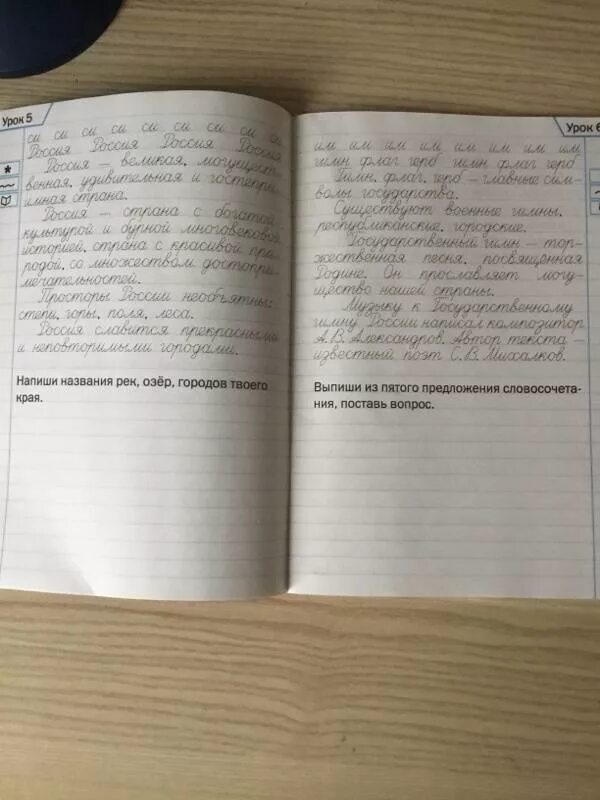 Урок 5
си си си си си си си си си
Россия Россия Россия Россия
Россия — великая, могущест-
венная, удивительная и гостепри-
имная страна.
Россия — страна с богатой
культурой и бурной многовековой
историей, страна с красивой при-
родой, со множеством достопри-
мечательностей.
Просторы России необъятны:
степи, горы, поля, леса.
Россия славится прекрасными
и неповторимыми городами.
Напиши названия рек, озёр, городов твоего
края.
Урок 6
им им им им им им им им
гимн флаг герб гимн флаг герб
Гимн, флаг, герб — главные сим-
волы государства.
Существуют военные гимны,
республиканские, городские.
Государственный гимн — тор-
жественная песня, посвящённая
Родине. Он прославляет могу-
щество нашей страны.
Музыку к Государственному
гимну России написал композитор
А. В. Александров. Автор текста —
известный поэт С. В. Михалков.
Выпиши из пятого предложения словосочета-
ния, поставь вопрос.